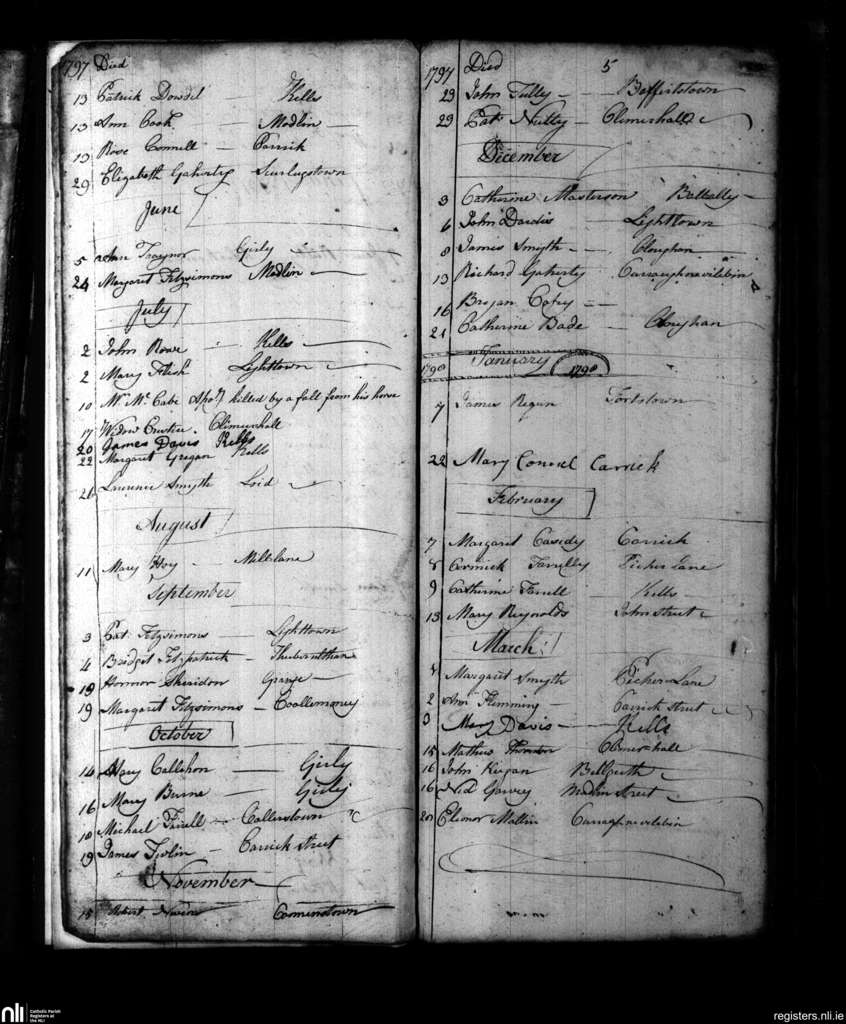 1797 Died
13 Patrick Dowdel — Kells
13 Ann Cook — Modlin
13 Rose Connell — Carrick
29 Elizabeth Gaherty Scurlugstown
June
5 Ann Traynor Girly
24 Margaret Fitzsimons Modlin
July
2 John Rowe Kells
2 Mary Lighttown
10 Mr. Mc. Cabe killed by a fall from his horse
17 Widow Climenhall
20 James Davis Kells
22 Margaret Gregan Kells
21 Laurence Smyth Loid
August
11 Mary Hoy Mill lane
September
3 Pat Fitzsimons — Lighttown
4 Bridget Fitzpatrick
19 Honnor Sheridon Grange
19 Margaret Fitzsimons
October
14 Mary Callehon — Girly
16 Mary Burne — Girly
18 Michael Farell
19 James — Carrick Street
November
15 Robert
1797 Died 5
23 John Tully
29 Pat Nulty Climenhall
December
3 Catherine Masterson
6 John Dardis Lighttown
8 James Smyth — Cloughan
13 Richard Gaherty Carraghnavilibin
16 Bryan
21 Catherine Bade — Cloughan
1798 January 1798
7 James Regan
22 Mary Connel Carrick
February
7 Margaret Casedy Carrick
8 Cormick Farrelly Picher Lane
9 Catherine Farell Kells
13 Mary Reynolds John Street
March
Margaret Smyth Picher Lane
2 Ann Flemming Carrick Street
3 Mary Davis — Kells
15 Mathew Climerhall
16 John Keegan
16 Ned Garvey Modlin Street
20 Elionor Carraghnavilibin
nli
Catholic Parish
Registers at
the NLI
registers.nli.ie